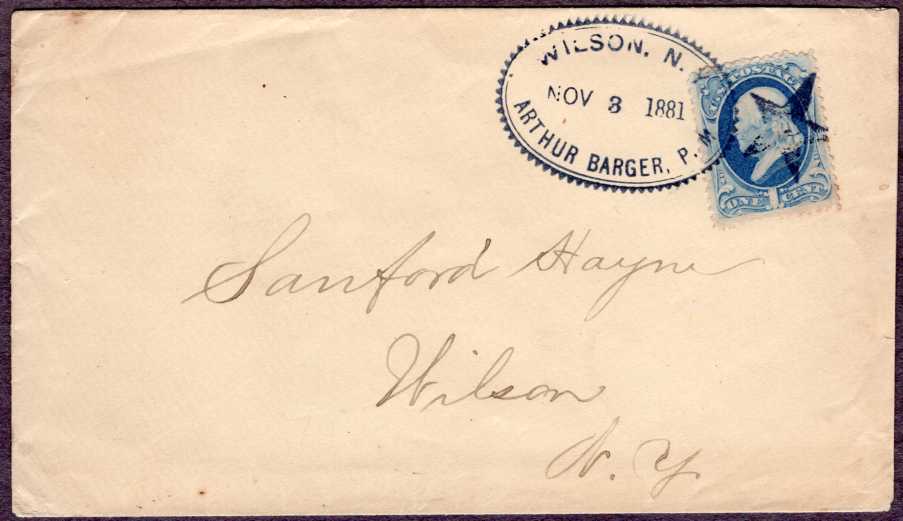 WILSON, N.
NOV 3 1881
ARTHUR BARGER, P. M
U.S. POSTAGE
ONE 1 CENT
Sanford Hayne
Wilson
N. Y.